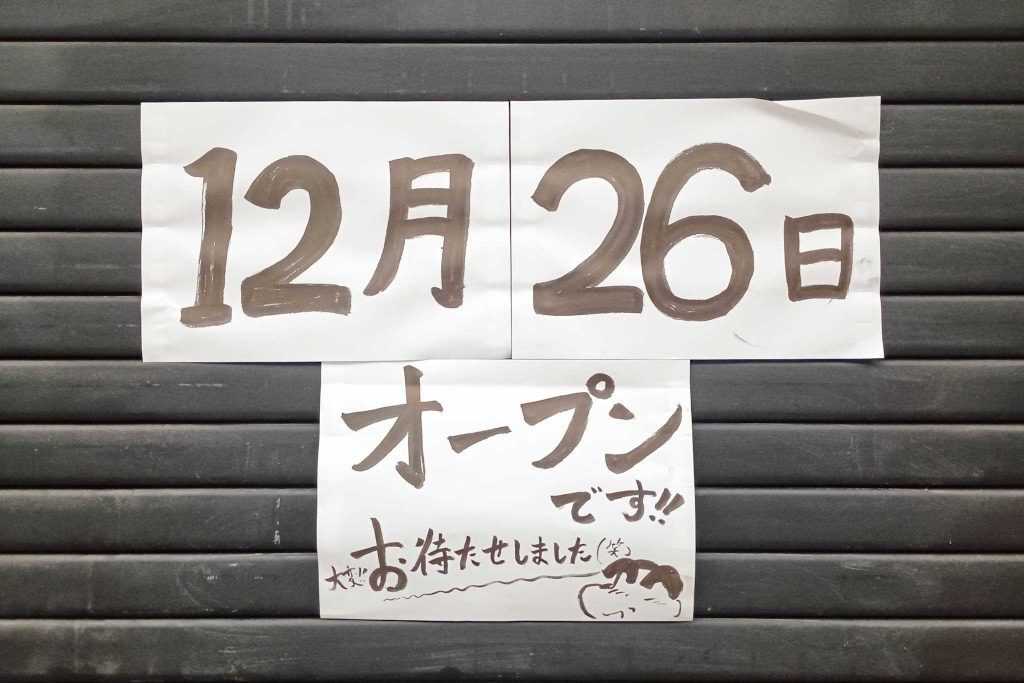 12月26日
オープン
です!!
大変!!お待たせしました(笑)